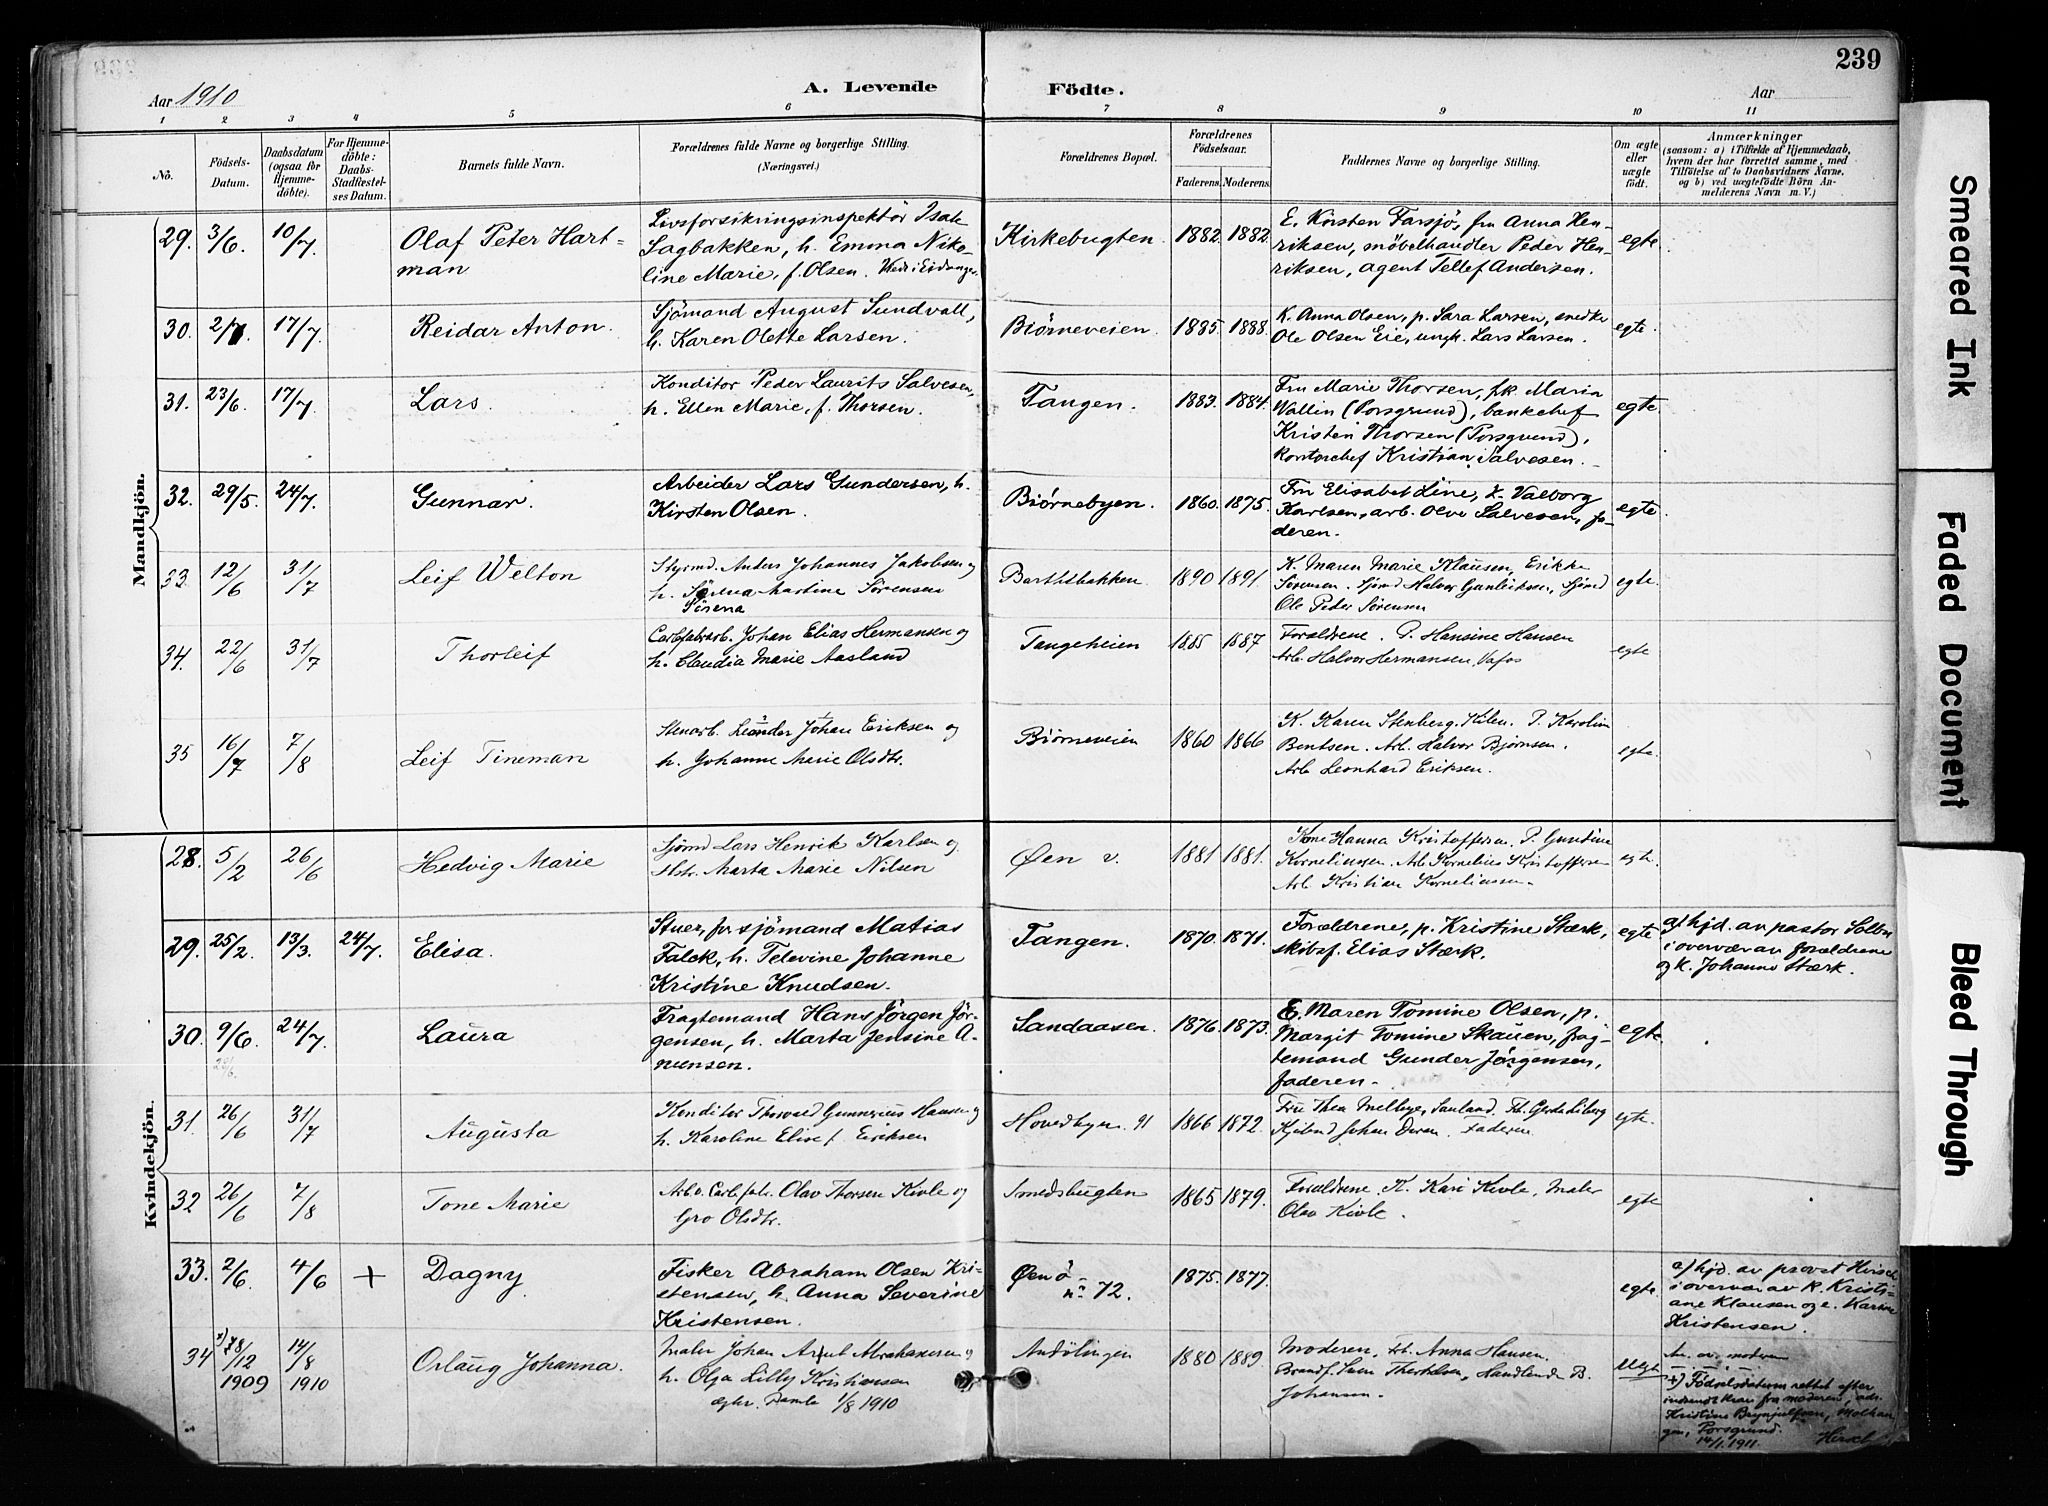 239
Aar 1910
A. Levende Födte.
Aar
1 2 3 4 5 6 7 8 9 10 11
No.
Födsels-Datum.
Daabsdatum (ogsaa for Hjemmedöbte).
For Hjemmedöbte: Daabs-Stadfæstelses Datum.
Barnets fulde Navn.
Forældrenes fulde Navne og borgerlige Stilling. (Næringsvei.)
Forældrenes Bopæl.
Forældrenes Födselsaar.
Faderens. Moderens.
Faddernes Navne og borgerlige Stilling.
Om ægte eller uægte födt.
Anmærkninger
(saasom: a) i Tilfælde af Hjemmedaab, hvem der har forrettet samme, med Tilföielse af to Daabsvidners Navne, og b) ved uægtefödte Börn Anmelderens Navn m. V.)
Mandkjön.
29. 3/6. 10/7. Olaf Peter Hart=
man
Livsforsikringsinspektör Isak
Sagbakken, h. Emma Niko-
line Marie, f. Olsen. Viedr i Eidanger.
Kirkebugten. 1882. 1882.
E. Kirsten Farsjö, fru Anna Hen-
riksen, möbelhandler Peder Hen-
riksen, agent Tellef Andersen.
egte
30. 2/7. 17/7. Reidar Anton.
Sjömand August Sundvall,
h. Karen Olette Larsen.
Biörneveien. 1885. 1888.
K. Anna Olsen, p. Sara Larsen, snedker
Ole Olsen Eie, ungk. Lars Larsen.
egte.
31. 23/6. 17/7. Lars.
Konditor Peder Laurits Salvesen,
h. Ellen Marie, f. Thorsen.
Tangen. 1883. 1884.
Fru Marie Thorsen, frk. Maria
Wallin (Porsgrund), bankchef
Kristen Thorsen (Porsgrund),
kontorchef Kristian Salvesen.
egte.
32. 29/5. 24/7. Gunnar.
Arbeider Lars Gundersen, h.
Kirsten Olsen.
Biörnebyen. 1860. 1875.
Fru Elisabet Line, k. Valborg
Karlsen, arb. Olve Salvesen, fa-
deren.
egte.
33. 12/6 31/7 Leif Welton
Styrmd. Anders Johannes Jakobsen og
h. Martine Sörensen
Sörena
Barthbakken. 1890 1891.
K. Maren Marie Klausen, Erikke
Sörensen. Sjömd Halvor Gunleiksen, Sjömd
Ole Peder Sörensen
egte.
34. 22/6 31/7 Thorleif
Carbfabrarb. Johan Elias Hermansen og
h. Claudia Marie Aasland
Tangeheien 1885 1887
Forældrene. P. Hansine Hansen
Arb. Halvor Hermansen, Vafos
egte
35 16/7 7/8 Leif Tineman
Stenarb. Leander Johan Eriksen og
h. Johanne Marie Olsdtr.
Biörneveien 1860 1866
K. Karen Stenberg, Kilen. P. Karoline
Bentsen. Arb. Halvor Bjørnsen.
Arb Leonhard Eriksen.
egte.
Kvindekjön.
28. 5/2 26/6 Hedvig Marie
Sjömd Lars Henrik Karlsen og
Hstr. Marta Marie Nilsen
Øen v. 1881 1881.
Kone Hanna Kristoffersen P. Gundine
Korneliussen. Arb Kornelius Kristoffersen
Arb Kristian Korneliussen.
egte.
29. 25/2. 13/3. 24/7. Elisa.
Stuer, før sjömand Matias
Falck, h. Televine Johanne
Kristine Knudsen.
Tangen. 1870. 1871.
Forældrene, p. Kristine Stærk,
skibsf. Elias Stærk.
egte
a/ hjd. av pastor
i overvær av forældrene
og k. Johanne Stærk.
30. 9/6. 24/7. Laura
28/6.
Fragtemand Hans Jörgen Jör-
gensen, h. Marta Jensine A-
nunsen.
Sandaasen. 1876. 1873.
E. Maren Tomine Olsen, p.
Margit Tomine Skauen, frag-
temand Gunder Jörgensen,
faderen.
egte
31 26/6 31/7 Augusta
Konditor Thorvald Gunnerius Hansen og
h. Karoline Elise f. Eiriksen
Hovedbyen 91 1866 1872.
Fru Thea Melbye, Sanland. Frk. Gerda Liberg
Kjöbmd Johan Faderen
egte.
32 26/6 7/8 Tone Marie
Arb. v. Carbfabr. Olav Thorsen Kivle og
Gro Olsdtr.
Smedsbugten 1865 1879.
Forældrene. K. Kari Kivle, Maler
Olav Kivle.
egte
33. 2/6. 4/6 + Dagny
Fisker Abraham Olsen Kri-
stensen, h. Anna Severine
Kristensen.
Øen ö
n= 72.
1875. 1877.
egte
a/ hjd. av provst Hirsch
i overvær av k. Kristi-
ane Klausen og e. Karen
Kristensen.
34 x) 28/12 1909 14/8 1910 Orlaug Johanna.
Maler Johan Arnt Abrahamsen og
h. Olga Lilly Kristiansen
egtv. Bamle 1/8 1910
1880 1889.
Moderen, Frk. Anna Hansen.
Brandf. Sven Therkelsen, Handlende B.
Johansen.
Uegte
An. av. moderen
+) Födselsdatoen rettet efter
fra moderen, adr.
Kristine Brynjulfsen,
Porsgrund.
14/1. 1911. Hirsch
Smeared Ink
Faded Document
Bleed Through